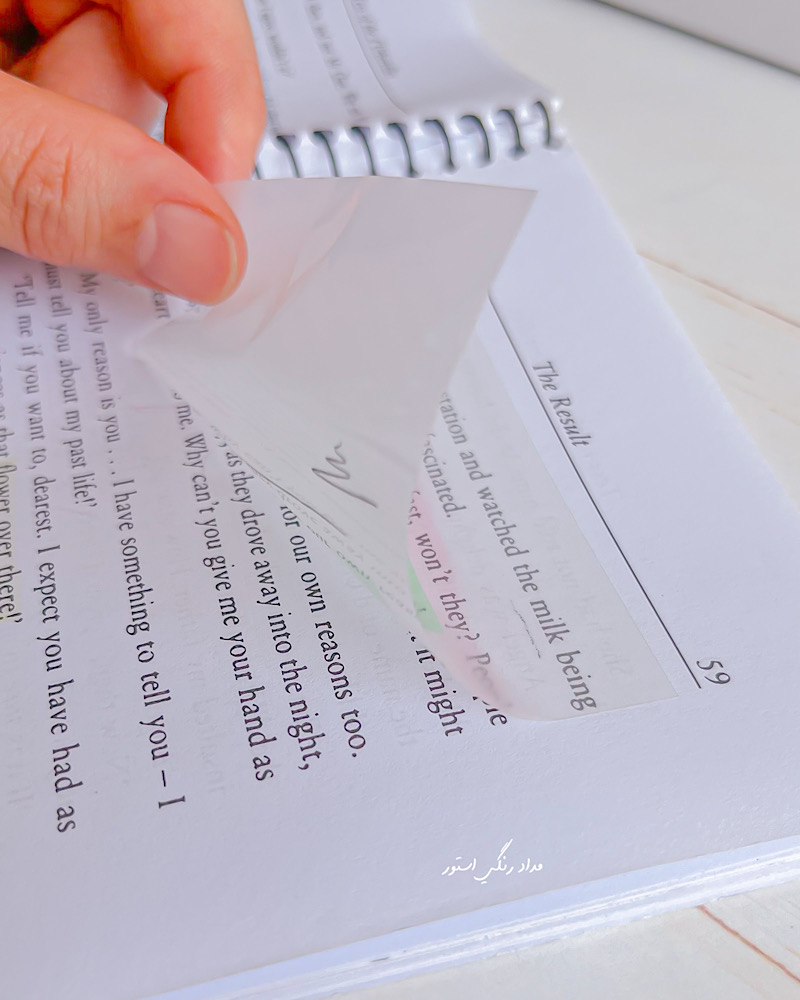 59
The Result
tation and watched the milk being
fascinated.
won't they?
it might
for our own reasons too.
as they drove away into the night,
me. Why can't you give me your hand as
My only reason is you ... I have something to tell you – I
must tell you about my past life!'
'Tell me if you want to, dearest. I expect you have had as
flower over there!'
مداد رنگی استور